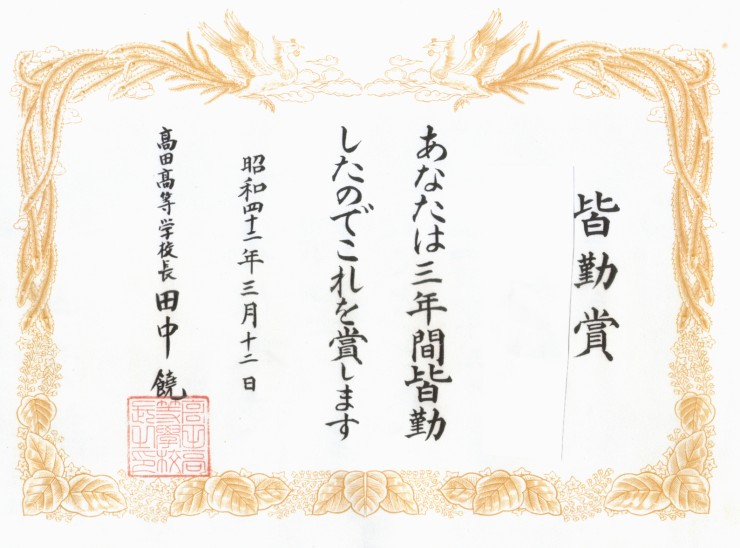 皆勤賞
あなたは三年間皆勤
したのでこれを賞します
昭和四十二年三月十二日
高田高等学校長 田中 饒